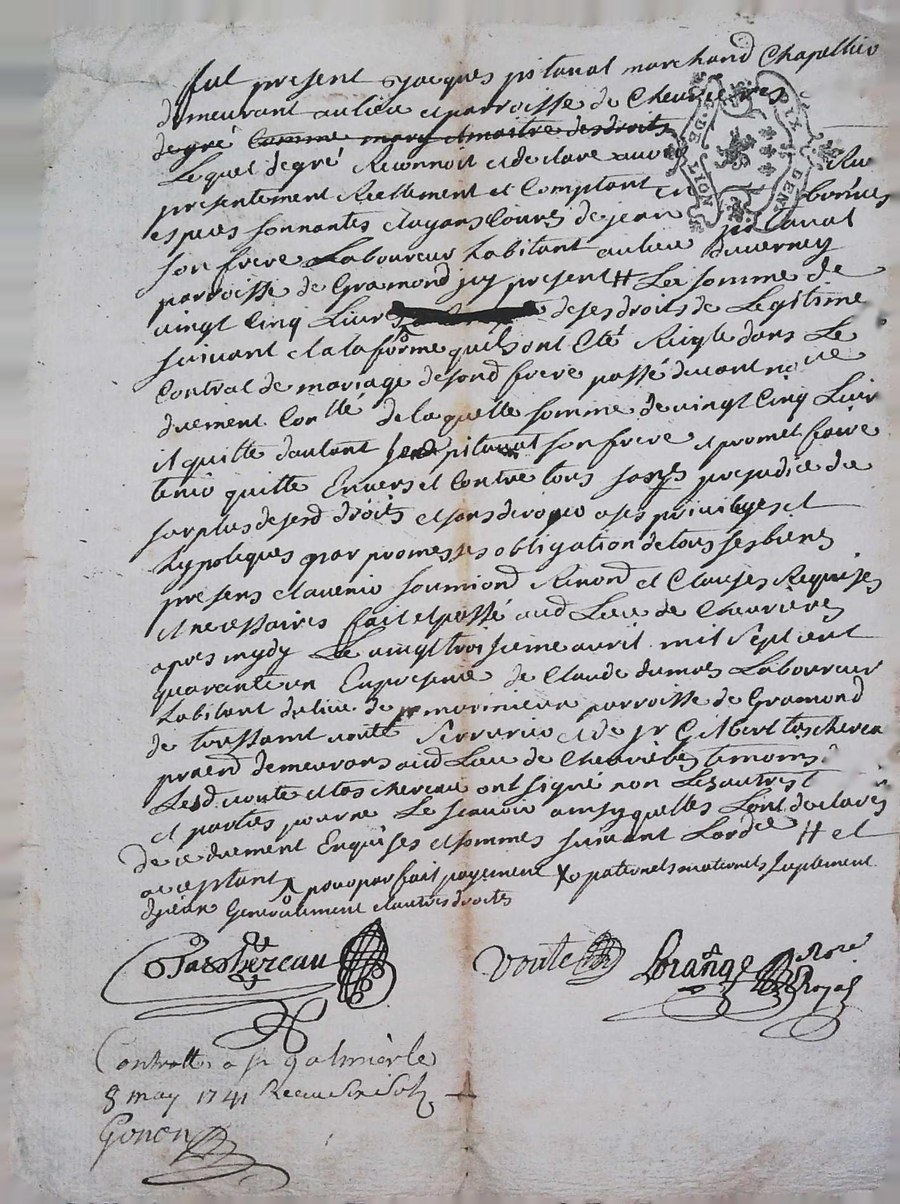 fut present Jacques pitaval marchand Chapellier
demeurant au lieu et parroisse de Chevrieres
de gré Comme mary et maitre des droits
Lequel de gré Reconnoit et declare avoir Ru
presentement Reellement et Comptant en bonnes
especes sonnantes et ayans Cours de jean pitaval
son frere Laboureur habitant au lieu Duverney
parroisse de Gramond jcy present # La somme de
vingt Cinq Livres de ses droits de Legitime
suivant et a la forme quils ont Eté Reigle dans Le
Contrat de mariage de sond frere passé devant no re
duement Con llé de laquelle somme de vingt Cinq Livr
il quitte d'autant led pitaval son frere et promet faire
tenir quitte Envers et Contre tous sans prejudice du
surplus de sesd droits et sans deroger a ses privileges et
hypoteques par promesses obligation de tous ses biens
presens et avenir soumiond Renond et Clauses Requises
et necessaires fait et passé aud Lieu de Chevrières
apres mydy Le vingt troisieme avril mil sept cent
quarante un En presence de Claude dumas Laboureur
habitant du lieu de morinieux parroisse de Gramond
de toussaint voute serrurier et de sr Gilbert taschereau
praend demeurans aud Lieu de Chevrières temoins
Lesd. voute et taschereau ont signé non Les autres t
et parties pour ne Le scavoir ainsy quelles L'ont declaré
de ce duement Enquises et sommes suivant Lordce # et
acceptant ^ pour parfait payement X paternels maternels suplement
dyceux Generalement et autres droits
Tashereau Voute Lorange Nore Royal
Controllé a st galmier le
8 may 1741 Receu six sols
Gonon
DE LION DIX DEN